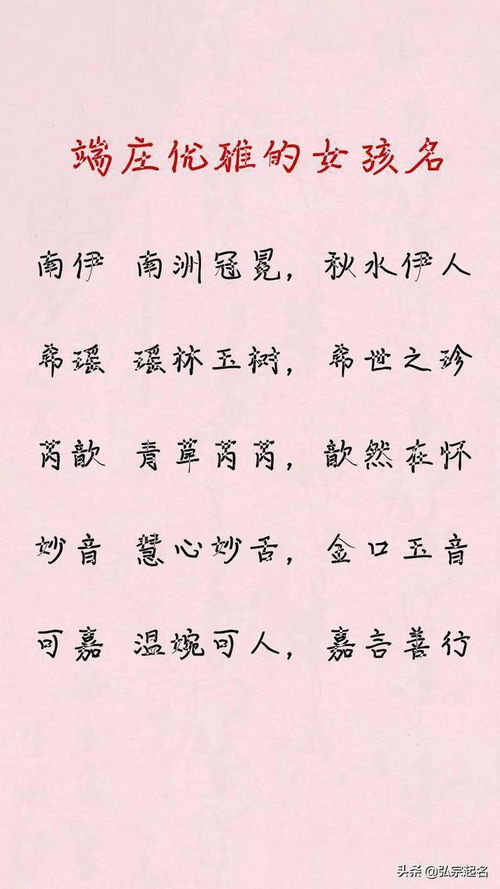 端庄优雅的女孩名
南伊 南洲冠冕，秋水伊人
希瑶 瑶林玉树，希世之珍
芮歆 青草芮芮，歆然在怀
妙音 慧心妙舌，金口玉音
可嘉 温婉可人，嘉言善行
头条 @弘宗起名